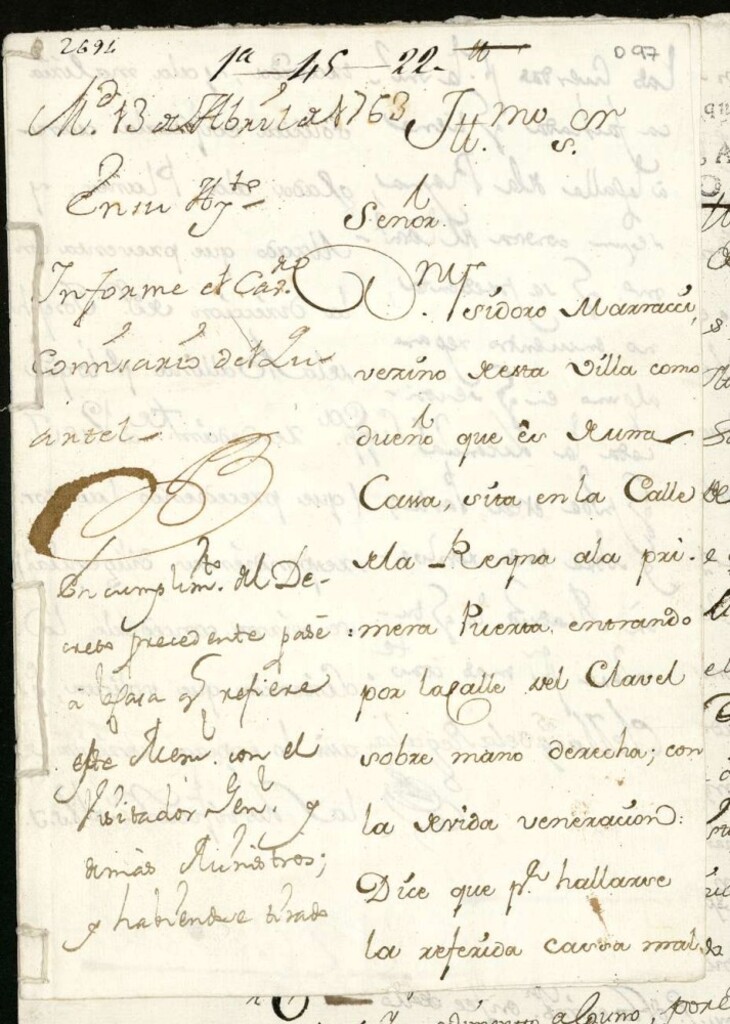 2691
1ª 45 22
097
M.d 13 de Abril de 1763
Ill.mo Sr
s.
En su Ay.to
Señor.
Informe el Cav.ro
Comisario del Qu
artel
D.n Ysidoro Marracci,
vezino de esta Villa como
dueño que es de una
Cassa, sita en la Calle
de la Reyna a la pri-
mera Puerta, entrando
por la Calle del Clavel
sobre mano derecha; con
la devida veneracion:
Dice que p.r hallarse
la referida cassa mal
En cumplim.to del De-
creto precedente pasé
à la Casa q refiere
este Mem.l con el
Visitador Gen.l y
demas Ministros;
y habiendose tirado